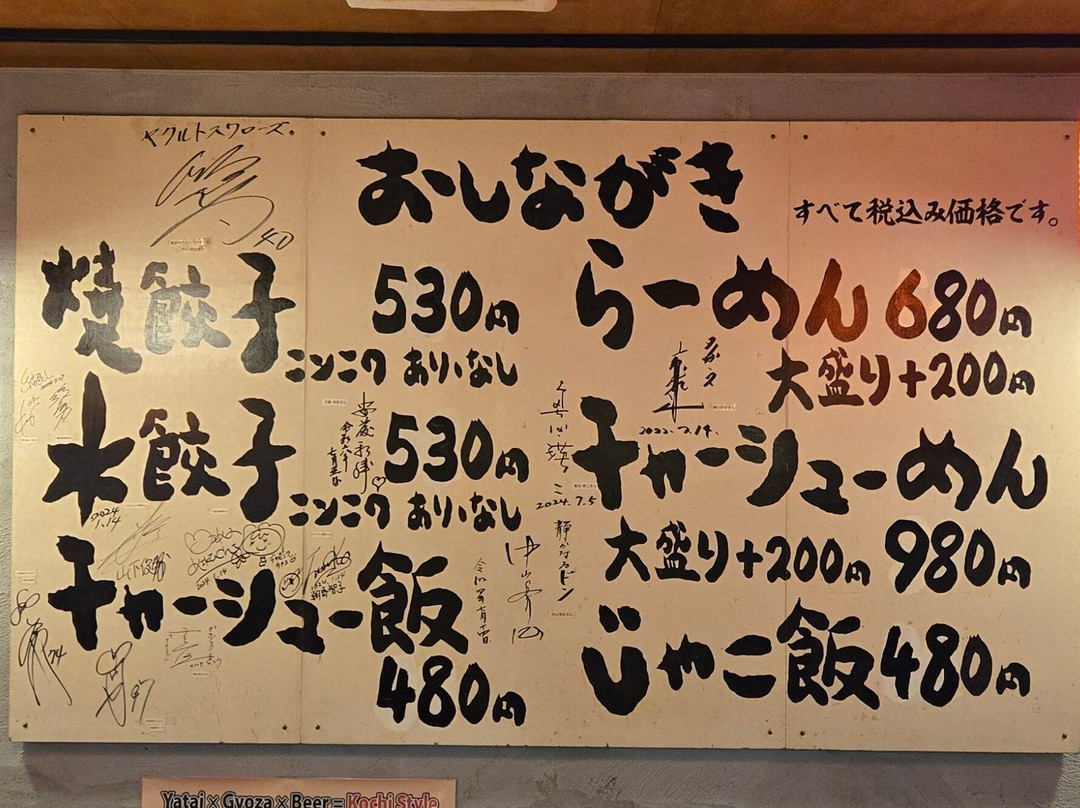 ヤクルトスワローズ。
40
おしながき
すべて税込み価格です。
焼餃子 530円
ニンニク あり・なし
水餃子 530円
ニンニク あり・なし
チャーシュー飯
480円
らーめん 680円
大盛り+200円
チャーシューめん
大盛り+200円 980円
じゃこ飯 480円
2022.7.14.
2024.7.5
2024
1.14
静かなるドン
97
Yatai×Gyoza×Beer=Kochi Style